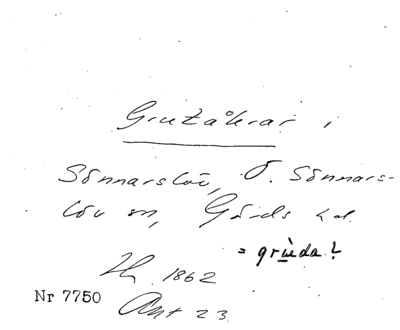 Gruzåkrar i
Sönnarslöv, Ö. Sönnars-
löv sn, Gärds hd.
= grùda?
1862
Nr 7750
Ant 23